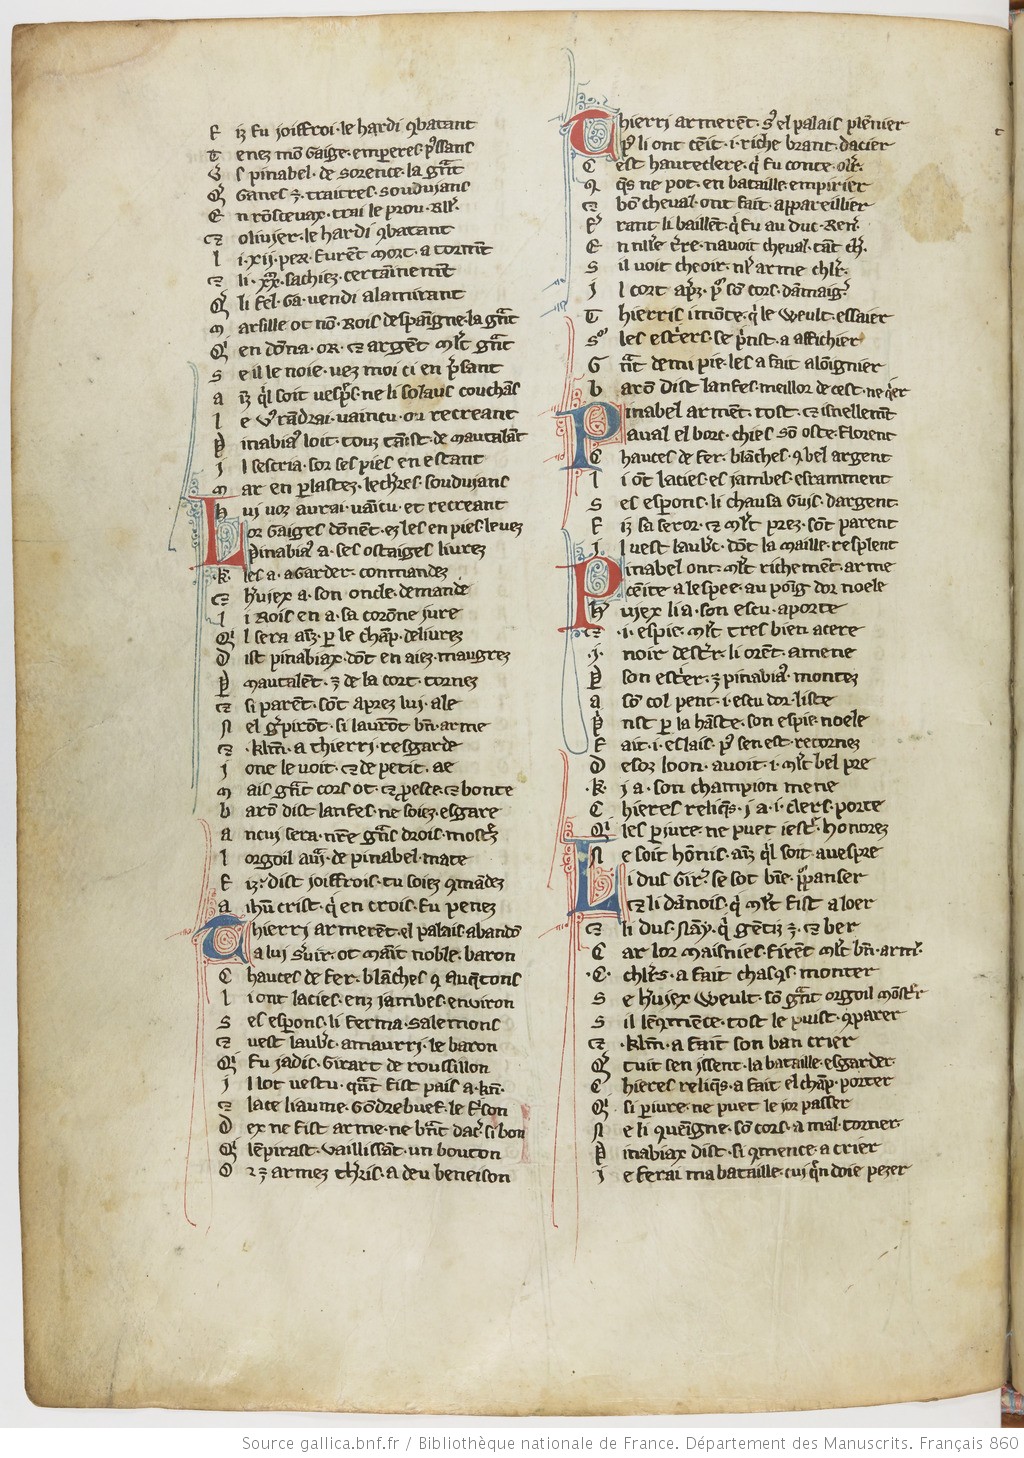 F iz fu joiffroi · le hardi ꝯbatant
T enez mō gaige · emperes pͥssans
V s pinabel · de sorence · la gͬāt
Q̄ Ganes ⁊ · traitres · soudujans
E n rōscevax · trai le prou · Rll'.
⁊ olivier · le hardi ꝯbatant
l i · xij · per · furēt mort · a torm̄t
⁊ li · xx · sachiez · certāinem̄t
Q li fel · Ga · vendi alamirant
M arsille ot nō · Rois despāigne · la gͬāt
Q en dōna · or · ⁊ argēt mlt gͬāt
S e il le noie · vez moi ci en pͥsant
a
l e vͬādrai · vaincu · ou recreant
P
I l
M ar en plastez · lechˀres · soudujans
h vi voz aurai · vāicu · et recreant
Lor gaiges dōnēt · ez les en pies · levez
pinabiaˀ a · ses ostaiges livrez
· k · les a · agarder · commandez
⁊ hͥuiex a · son oncle · demande
l i Rois en a · sa corōne jure
Q l sera · p le chāp · delivrez
D ist pinabiax · dōt en aiez · maugrez
P mautalēt · ⁊ de la cort · tornez
⁊ si parēt · sōt aprez lui · ale
N el gͥpirōt · si laurōt bn̄ · arme
⁊ · kl'm̄ · a thierri · resgarde
J one le voit · ⁊ de petit · ae
M ais gͬāt cors ot · ⁊ p̄este · ⁊ bonte
B arō dist lanfes · ne soiez · esgare
a ncui sera · nr̄e gͬās drois · mostͬz
l orgoil · de pinabel · mate
F iz · dist joiffrois · tu soiez ꝯmādez
a ihū crist · qͥ en crois · fu penez
Thierri armerēt · el palais · abandō
a lui sͥvir · ot māit noble · baron
C hauces de fer · blāches ꝯ auqͬtons
l i ont lacies · enz jambes · environ
S es esperons · li ferma · salemons
⁊ vest laubˀc · amaurri · le baron
Q fu jadis · Girart de roussillon
J l lot vestu · qͬāt fist pais a · kl'.
⁊ lace liaume · Gōdrebuef · le frison
D ex ne fist arme · ne bͬāt dacˀ · si bon
Q lēpirast · vaillissāt · un bouton
O r ⁊ armez thˀris · a deu beneison
Thierri armerēt · sͬ el palais plenier
Pͥ li ont cēit · i · riche brant · dacier
C est hauteclere · qͥ fu conte · olˀr ·
Q qͬs ne pot · en bataille · empirier
⁊ bō cheval · ont fait · appareillier
F rant li baillēt · qͥ fu au duc · Renˀ.
E n nulˀe tˀre · navoit cheval · tāt chˀ.
S il voit cheoir · nlˀ arme chlˀr ·
J l cort apͬz · pͬ sō cors · dāmaigˀ
T hierris i mōte · qͥ le weult · essaier
Sͬ les estͥers · se pͥnst · a affichier
G ͬāt demi pie · les a fait · alōignier
B arō dist lanfes · meillor de cest · ne qˀer
Pinabel armēt · tost · ⁊ isnellem̄t
aval el borc · chies sō oste · florent
C hauces de fer · blāches · ꝯbel argent
l i ōt lacies · es jambes · estramment
S es esperons · li chausa Guis · dargent
F iz sa seror · ⁊ mlt prez · sōt parent
J l vest laubˀc · dōt la maille · resplent
Pinabel ont · mlt richemēt · arme
Pcēite a lespee · au pōig dor noele
h vjex li a · son escu · aporte
⁊ · i · espie · mlt tres bien · acere
· J · noir destͬr · li orēt · amene
P son estͥer · ⁊ pinabiaˀ · montez
a sō col pent · i · escu dor · liste
P nst p la hāste · son espie · noele
F ait · i · eslais · pͬ sen est · retornez
D esoz loon · avoit · i · mlt bel pre
· K · j a · son champion · mene
C hieres reliqͬs · j a · i · clers · porte
Q les pjure · ne puet · honorez
N e soit hōnis · qͥl soit · avespre
Li dus Girˀ · se sot bn̄e · pͬpanser
⁊ li dānois · qͥ mlt fist · a loer
⁊ li dus · Nāy · qͥ gētiz ⁊ · ber
C ar lor maisnies · firēt mlt bn̄ · armˀ
· C · chlˀrs · a fait chasqͬs · monter
S e hˀuiex weult · sō gͬāt orgoil mōstͬr
S il lēꝯmēce · tost le puist · ꝯparer
⁊ · kl'm̄ · a fait son ban crier
Q tuit sen issent · la bataille · esgarder
C hieres reliqͬs · a fait el chāp · porter
Q si pjure · ne puet le jor passer
N e li quēigne · sō cors · a mal · torner
P inabiax dist · si ꝯmence · a crier
J e ferai ma bataille · cui qͥn doie pezer
Source gallica.bnf.fr / Bibliothèque nationale de France. Département des Manuscrits. Français 860